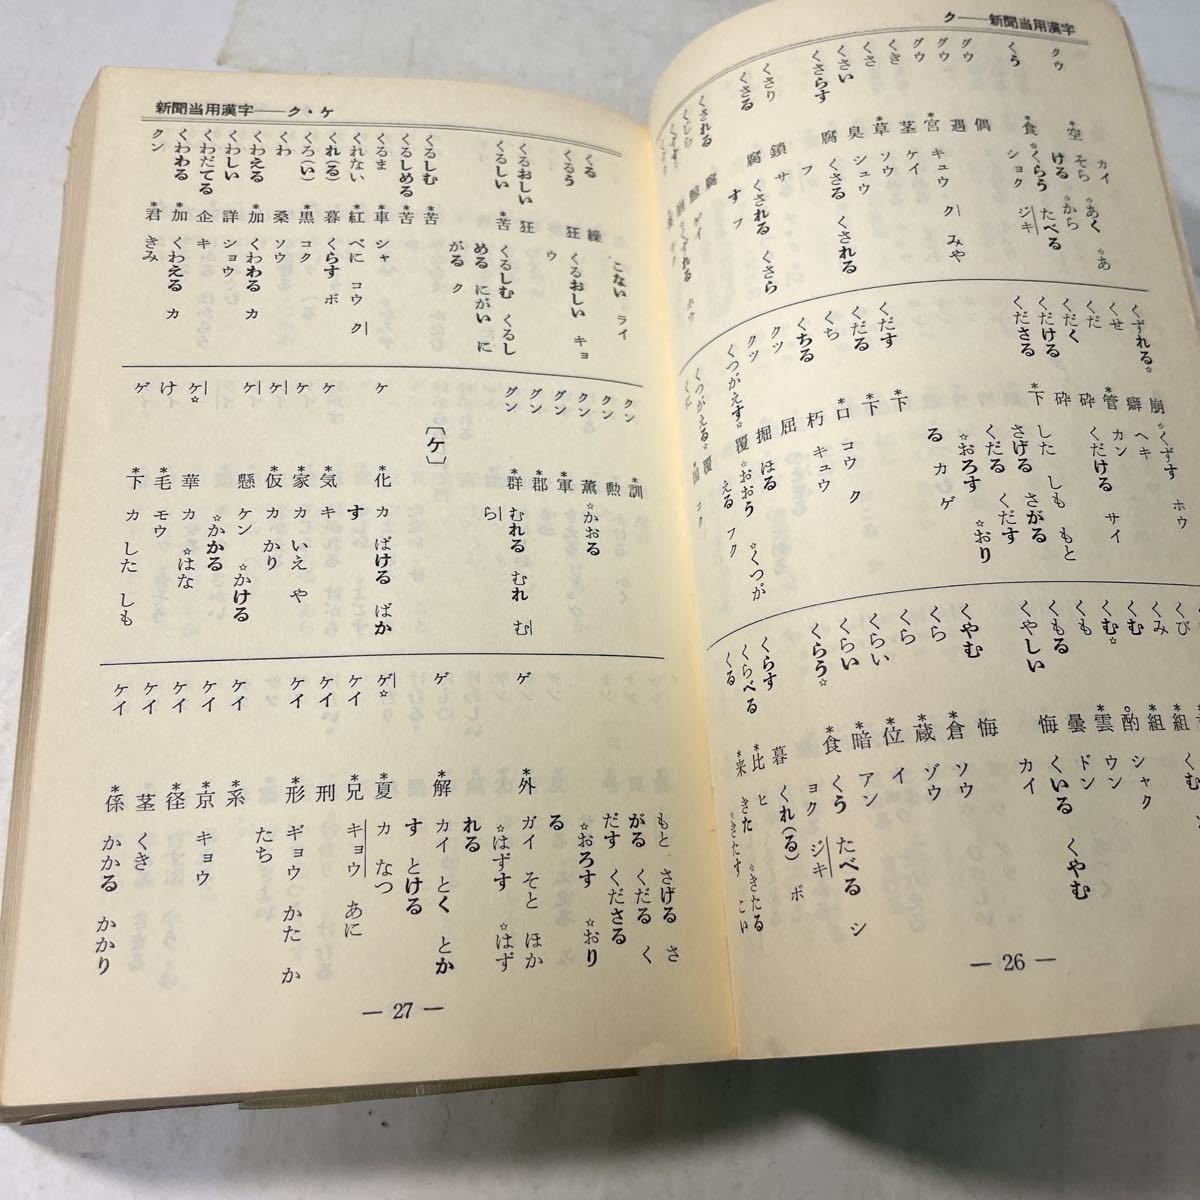 ク――新聞当用漢字
クウ *空 そら から あく あ
ける
カイ
くう *食 くらう たべる
ショク ジキ
グウ 偶
グウ 遇
グウ *宮 キュウ ク みや
くき 茎 ケイ
くさ *草 ソウ
くさい 臭 シュウ
くさらす 腐 くさる くされる
フ
くさり 鎖 サ
くさる 腐 くされる くさら
す フ
くされる 腐
くずれる☆ 崩 ☆くずす ホウ
くせ 癖 ヘキ
くだ *管 カン
くだく 砕 くだける サイ
くだける 砕
くださる *下 した しも もと
さげる さがる
くだる くだす
☆おろす ☆おり
る カ ゲ
くだす *下
くだる *下
くち *口 コウ ク
くちる 朽 キュウ
クツ 屈
クツ 掘 ほる
くつがえす☆ 覆 ☆おおう ☆くつが
える フク
くつがえる☆ 覆
くび
くみ *組 くむ
くむ *組
くむ☆ 酌 シャク
くも *雲 ウン
くもる 曇 ドン
くやしい 悔 くいる くやむ
カイ
くやむ 悔
くら *倉 ソウ
くら *蔵 ゾウ
くらい *位 イ
くらい *暗 アン
くらう☆ *食 くう たべる シ
ョク ジキ
くらす 暮 くれ(る) ボ
くらべる *比 ヒ
くる *来 きた ☆きたる
☆きたす こい
― 26 ―
新聞当用漢字――ク・ケ
こない ライ
くる 繰
くるう 狂 くるおしい キョ
ウ
くるおしい 狂
くるしい *苦 くるしむ くるし
める にがい に
がる ク
くるしむ *苦
くるしめる *苦
くるま *車 シャ
くれない *紅 べに コウ ク
くれ(る) 暮 くらす ボ
くろ(い) *黒 コク
くわ 桑 ソウ
くわえる *加 くわわる カ
くわしい 詳 ショウ
くわだてる 企 キ
くわわる *加 くわえる カ
クン *君 きみ
クン *訓
クン 勲
クン 薫 ☆かおる
グン *軍
グン *郡
グン *群 むれる むれ む
ら
〔ケ〕
ケ *化 カ ばける ばか
す
ケ *気 キ
ケ *家 カ いえ や
ケ *仮 カ かり
ケ 懸 ケン ☆かける
☆かかる
ケ☆ 華 カ ☆はな
け *毛 モウ
ゲ *下 カ した しも
もと さげる さ
がる くだる く
だす くださる
☆おろす ☆おり
る
ゲ *外 ガイ そと ほか
☆はずす ☆はず
れる
ゲ *解 カイ とく とか
す とける
ゲ☆ *夏 カ なつ
ケイ *兄 キョウ あに
ケイ 刑
ケイ *形 ギョウ かた か
たち
ケイ *系
ケイ *京 キョウ
ケイ *径
ケイ 茎 くき
ケイ *係 かかる かかり
― 27 ―